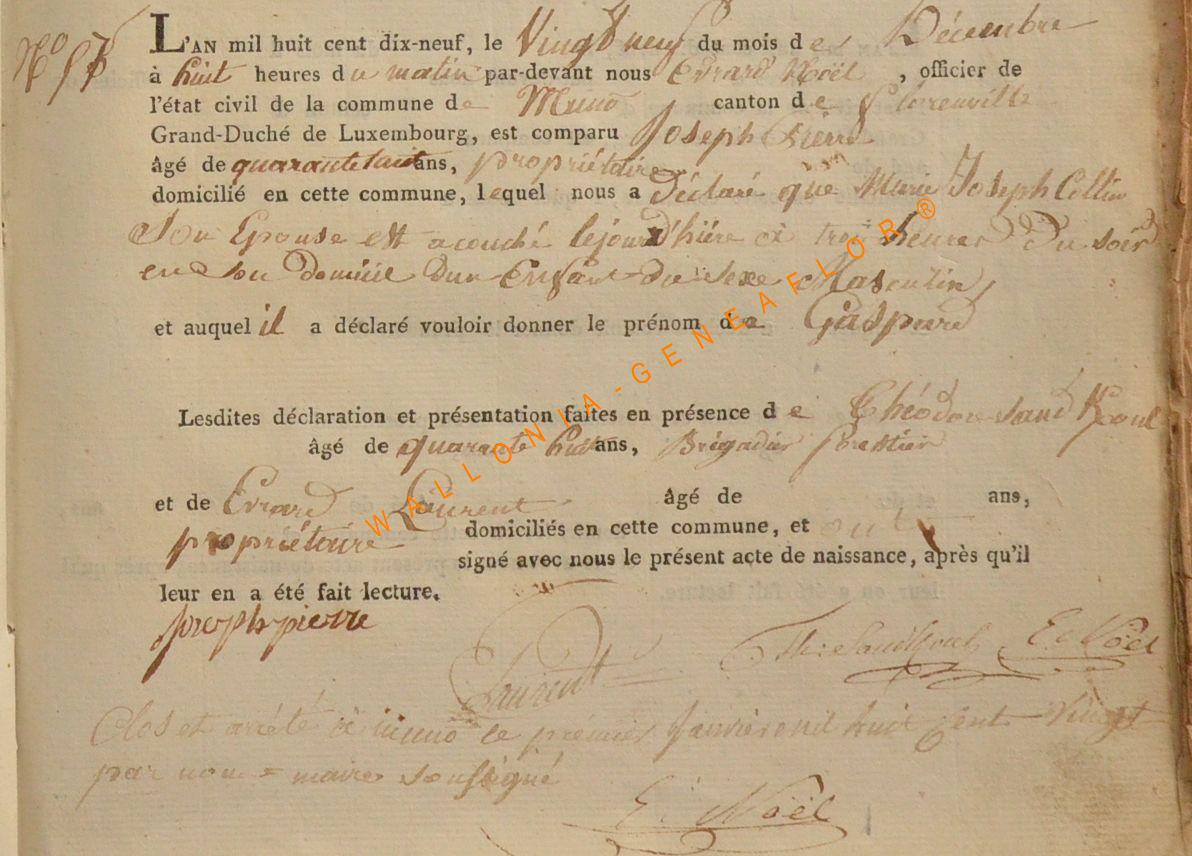 N° 57
L'AN mil huit cent dix-neuf, le Vingt neuf du mois de Décembre
à huit heures du matin par-devant nous Evrard Noël , officier de
l'état civil de la commune de Muno canton de Florenville
Grand-Duché de Luxembourg, est comparu Joseph Pierre
âgé de quarante huit ans, propriétaire
domicilié en cette commune, lequel nous a déclaré que Marie Joseph Collin
Son Epouse est acouché lejour d'hière à trois heures Du soir
en son domicile Dun Enfant du sexe Masculin,
et auquel il a déclaré vouloir donner le prénom de Gaspard
Lesdites déclaration et présentation faites en présence de Théodore Sand
âgé de quarante huit ans, Brigadier forestier
et de Evrard Laurent âgé de ans,
propriétaire domiciliés en cette commune, et ont
signé avec nous le présent acte de naissance, après qu'il
leur en a été fait lecture.
joseph pierre
Laurent
E. Noël
Clos et arrété à muno le prémier Janvier mil huit Cent Vingt
par nous maire soussigné
E. Noël
WALLONIA-GENEAFLOR®